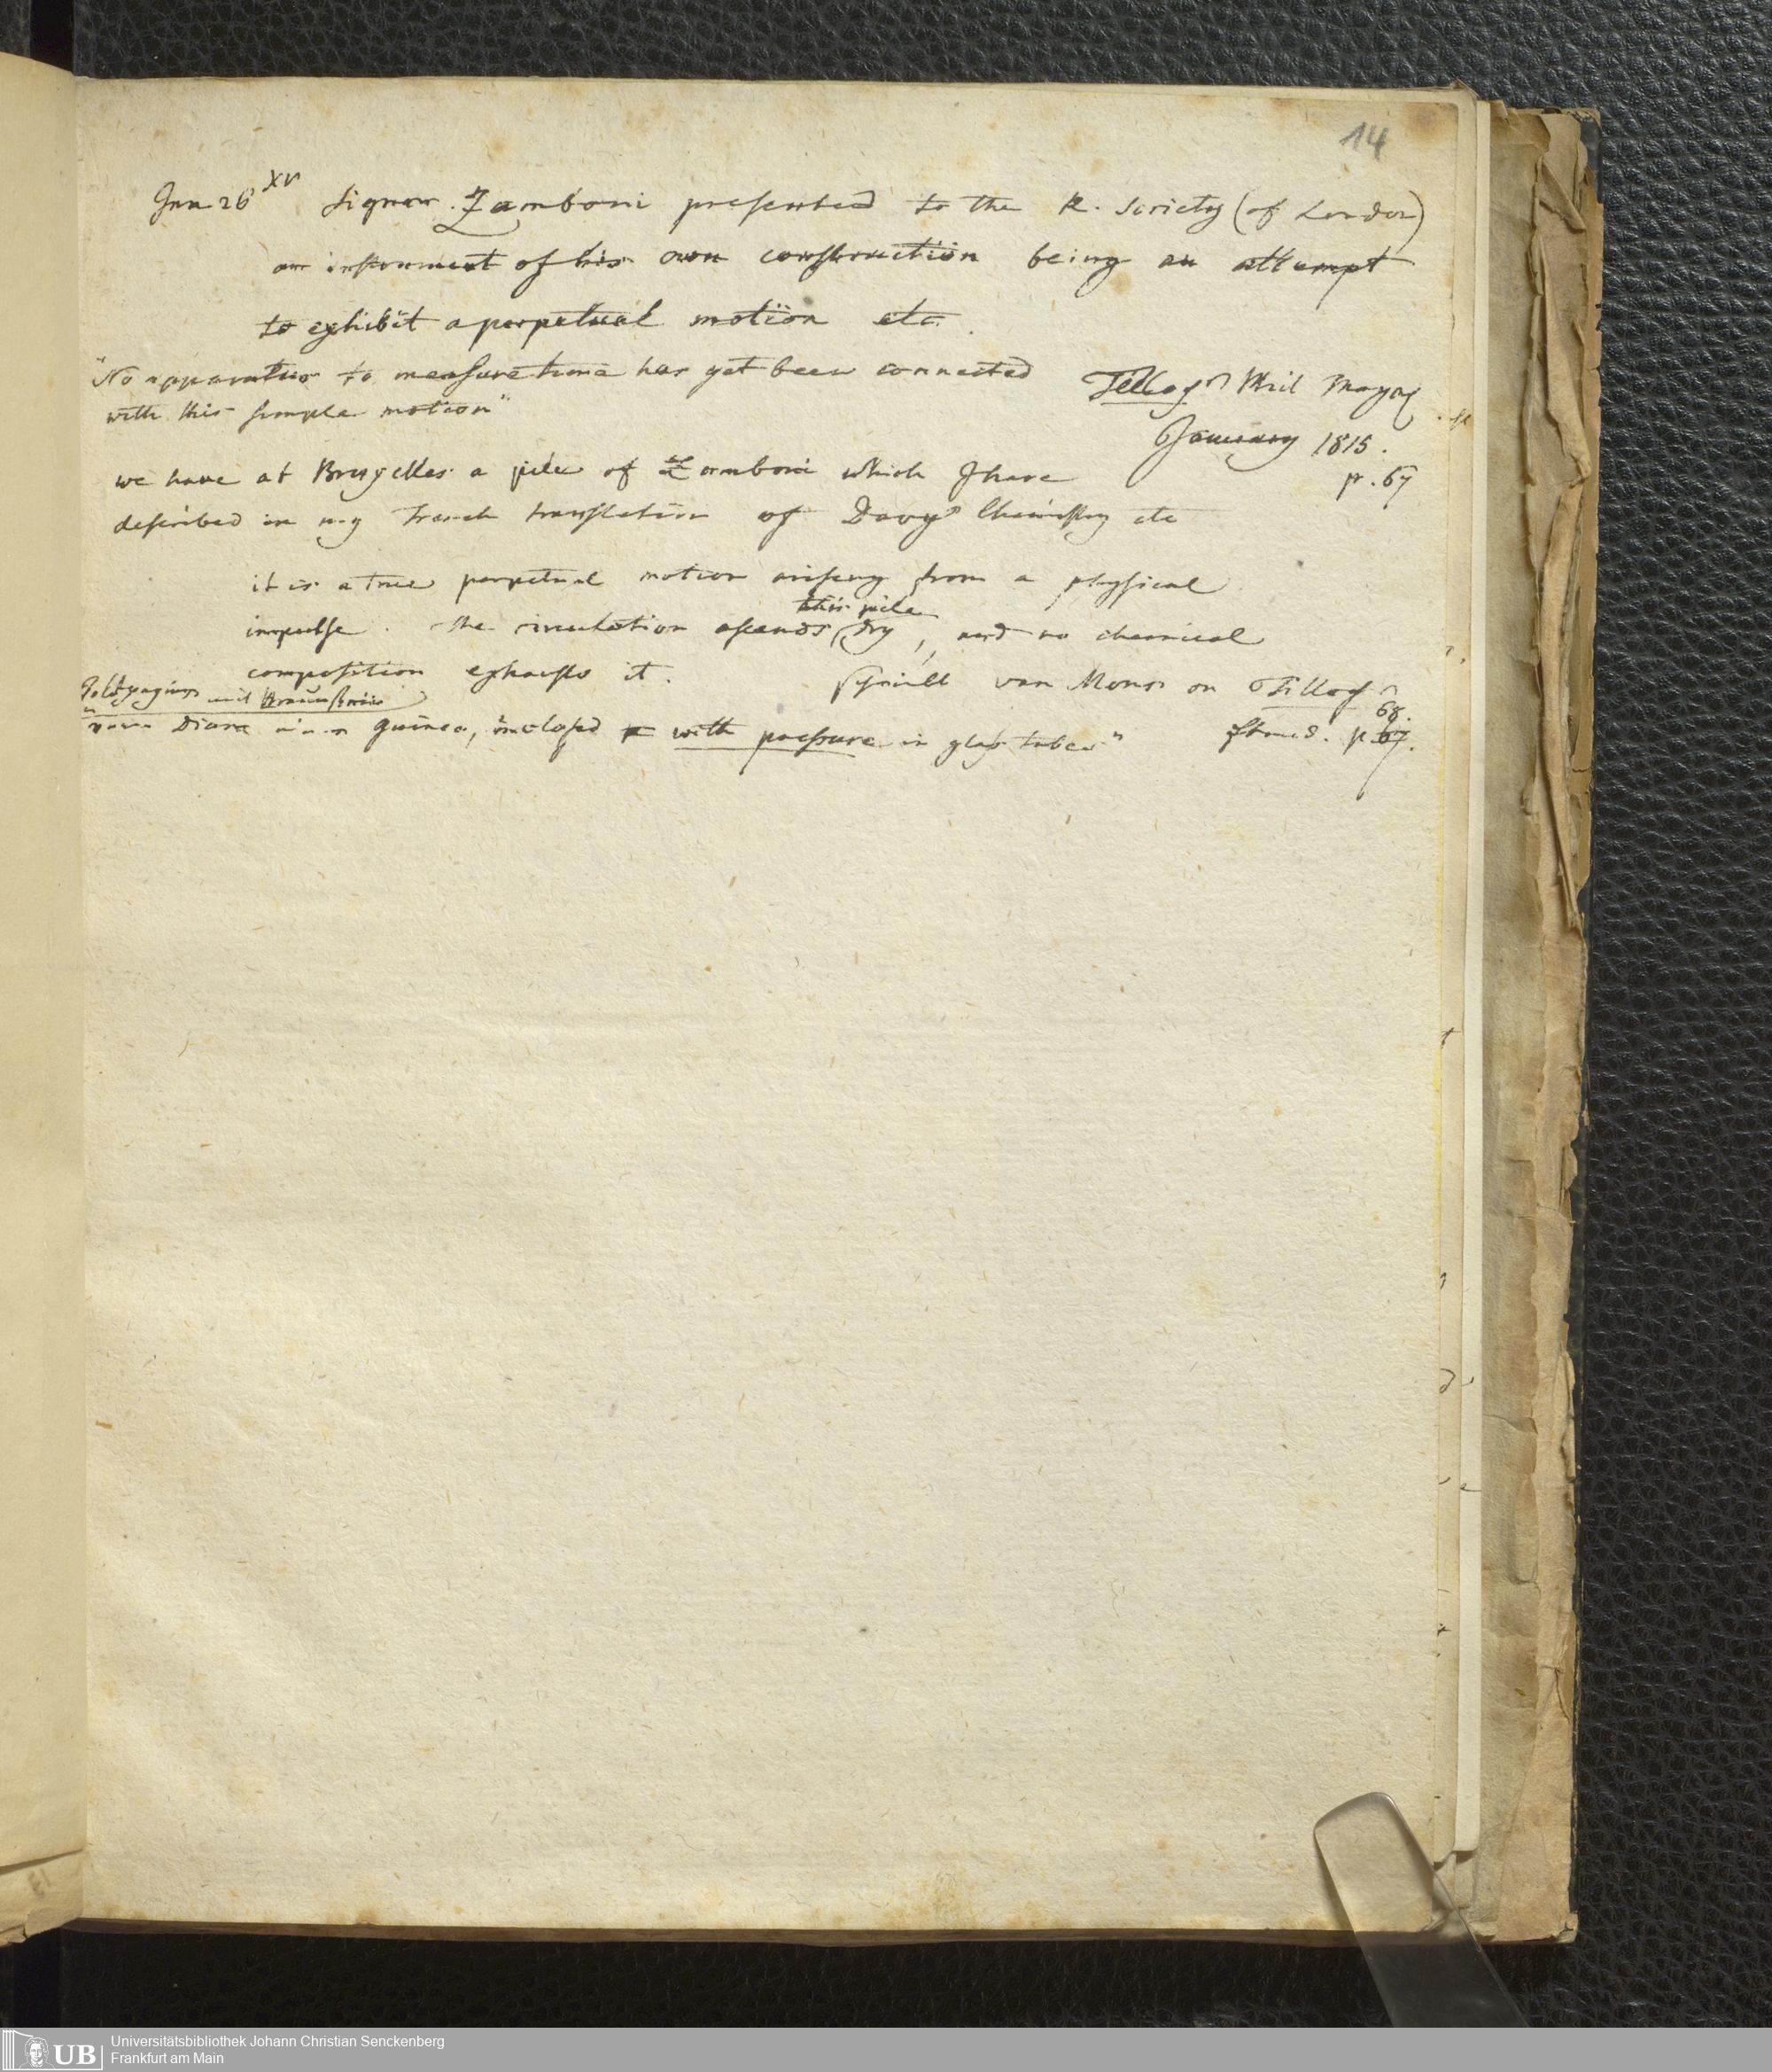 14
Jan 26 XV Signor Zamboni presented to the R. Society (of London)
an instrument of his own construction being an attempt
to exhibit a perpetual motion etc.
"No apparatus to measure time has yet been connected
with this simple motion"
Tilloch Phil Magaz
January 1815.
p. 67
we have at Bruxelles a pile of Zamboni which I have
described in my French translation of Davys Chemistry etc
it is a true perpetual motion arising from a physical
impulse. The circulation ascends (dry, and no chemical
this pile
composition exhausts it.
schreibt van Mons an Tilloch
mit Braunstein
guinea, inclosed with pressure in glass tubes"
68.
p. 67.
Universitätsbibliothek Johann Christian Senckenberg
Frankfurt am Main
UB